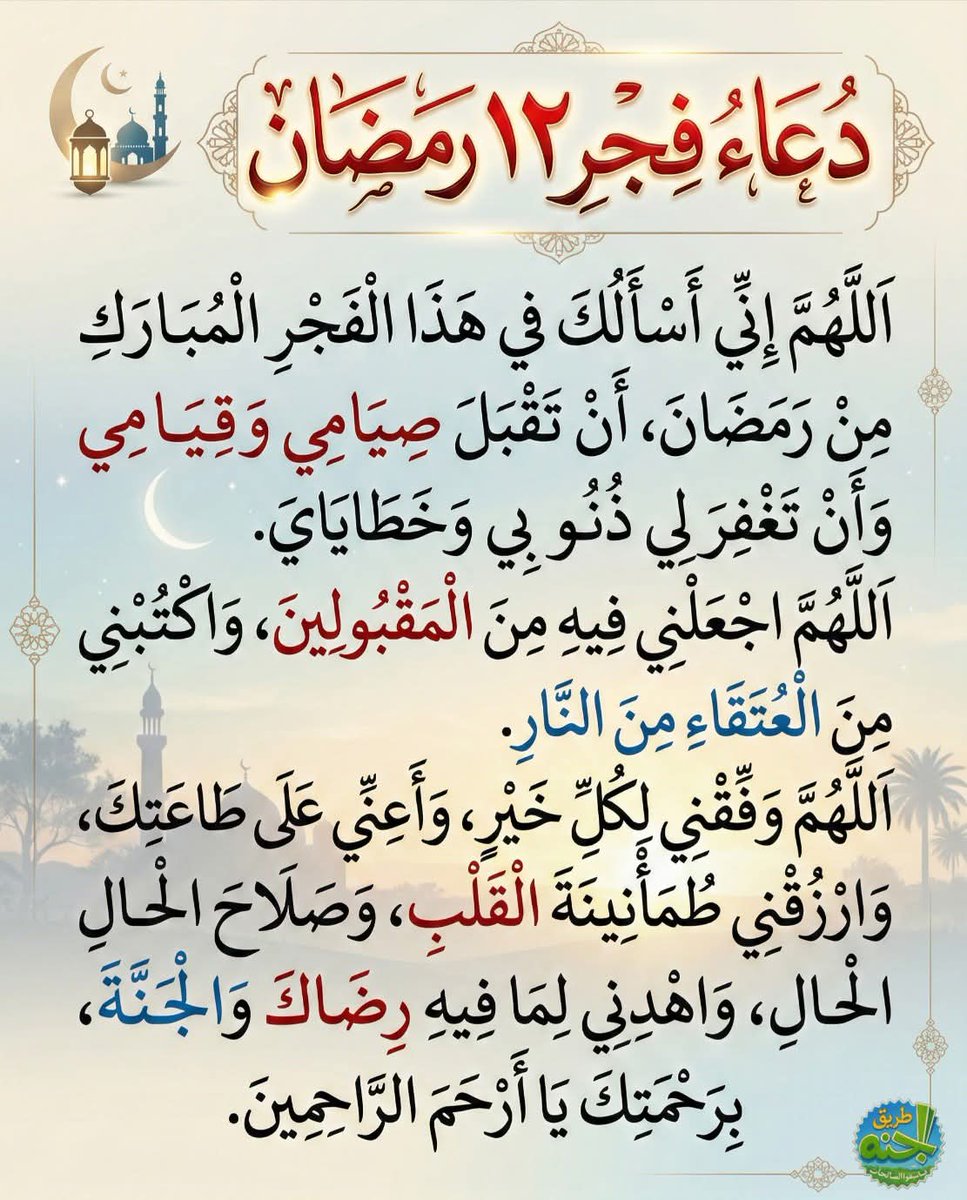 دُعَاءُ فِجْرِ ١٢ رَمَضَان
اَللَّهُمَّ إِنِّي أَسْأَلُكَ فِي هَذَا الْفَجْرِ الْمُبَارَكِ
مِنْ رَمَضَانَ، أَنْ تَقْبَلَ صِيَامِي وَقِيَامِي
وَأَنْ تَغْفِرَ لِي ذُنُوبِي وَخَطَايَايَ.
اَللَّهُمَّ اجْعَلْنِي فِيهِ مِنَ الْمَقْبُولِينَ، وَاكْتُبْنِي
مِنَ الْعُتَقَاءِ مِنَ النَّارِ.
اَللَّهُمَّ وَفِّقْنِي لِكُلِّ خَيْرٍ، وَأَعِنِّي عَلَى طَاعَتِكَ،
وَارْزُقْنِي طُمَأْنِينَةَ الْقَلْبِ، وَصَلَاحَ الْحَالِ
الْحَالِ، وَاهْدِنِي لِمَا فِيهِ رِضَاكَ وَالْجَنَّةَ،
بِرَحْمَتِكَ يَا أَرْحَمَ الرَّاحِمِينَ.
طريق
الجنة